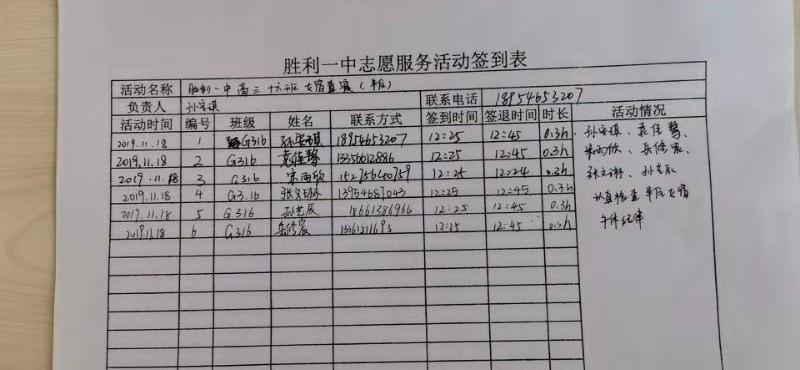 胜利一中志愿服务活动签到表
活动名称 胜利一中高三十六班女宿查寝(午后)
负责人 孙宝琪 联系电话 18954653207
活动时间 编号 班级 姓名 联系方式 签到时间 签退时间 时长 活动情况
2019.11.18 1 G316 孙宝琪 18954653207 12:25 12:45 0.3h 孙宝琪、袁佳馨、
2019.11.18 2 G316 袁佳馨 13356012886 12:25 12:45 0.3h 宋雨欣、岳修宸、
2019.11.18 3 G316 宋雨欣 15275640759 12:25 12:24 0.3h 张文琳、孙艺辰
2019.11.18 4 G3.16 张文琳 13954687043 12:25 12:45 0.3h 认真检查午后女宿
2019.11.18 5 G.316 孙艺辰 18661386966 12:25 12:45 0.3h 午休纪律
2019.11.18 6 G316 岳修宸 12:25 12:45 0.3h